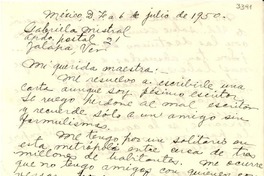 3391
México, D. F. a 6 de julio de 1950.
Gabriela Mistral
Apdo. postal 21
Jalapa Ver.
Mi querida maestra:
Me resuelvo a escribirle una
carta aunque soy pésimo escritor
Le ruego perdone al mal escritor
y recuerde sólo a un amigo sin
formulismos.
Me tengo por un solitario en
esta metrópolis entre cerca de tres
millones de habitantes. Me ocurre
que no tengo amigos con quienes con